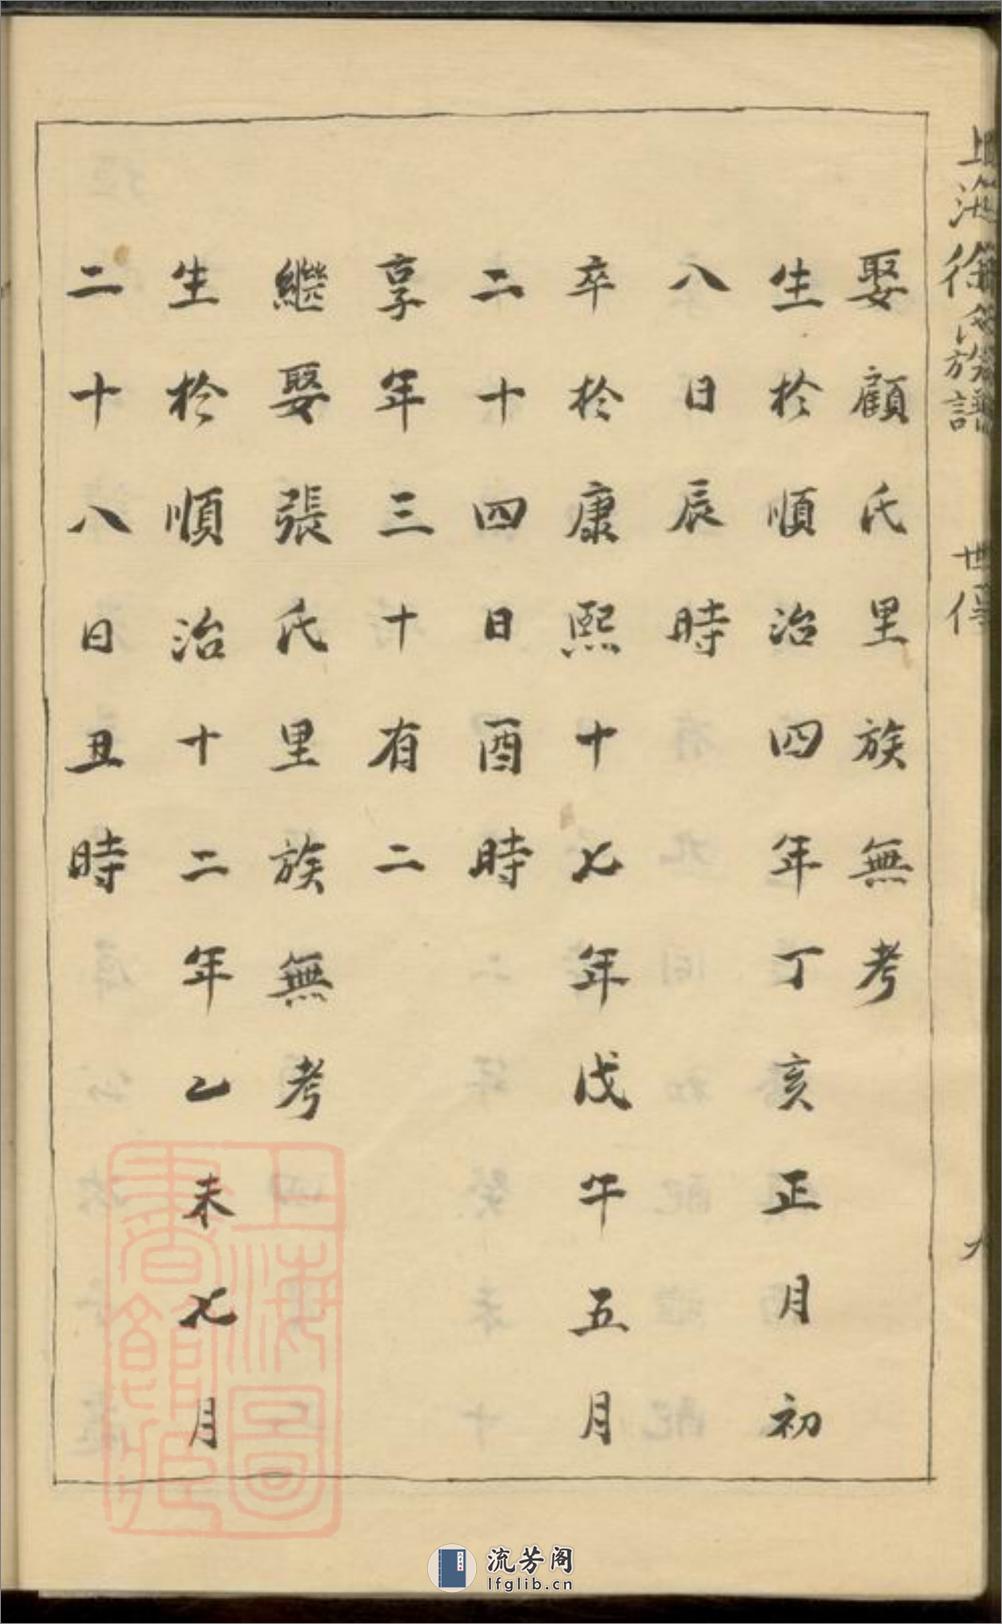 上海徐氏族譜
世傳
娶顧氏里族無考
生於順治四年丁亥正月初
八日辰時
卒於康熙十七年戊午五月
二十四日酉時
享年三十有二
繼娶張氏里族無考
生於順治十二年乙未七月
二十八日丑時
上海圖書館藏
流芳阁
lfglib.cn